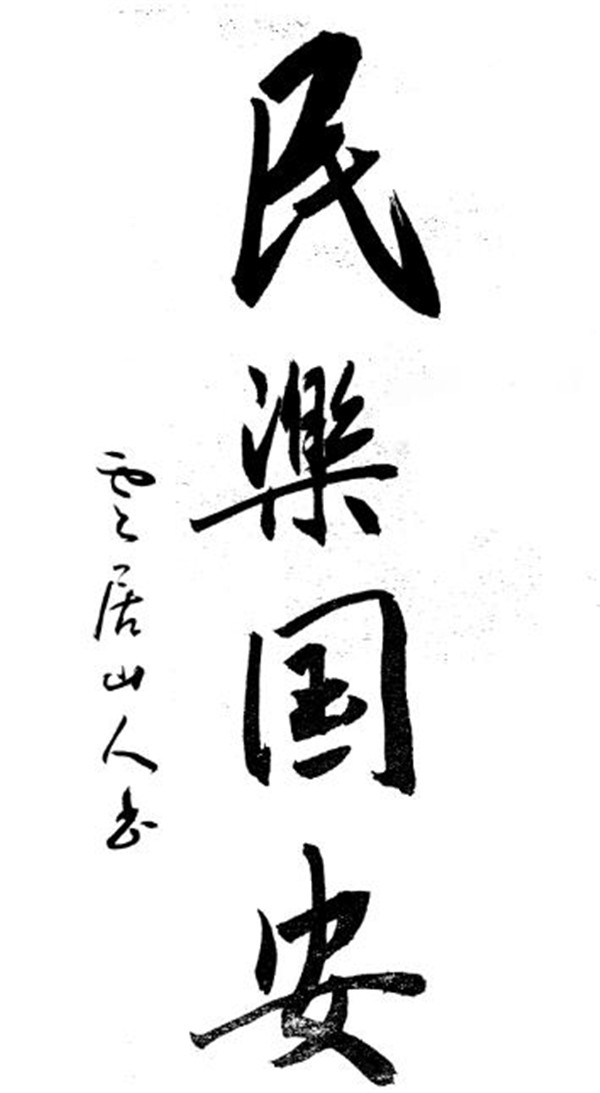 民樂国安
雲居山人书